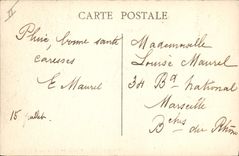 CARTE POSTALE
bonne santé
caresses
E Maurel
15 juillet.
Mademoiselle
Louise Maurel
34 Bd national
Marseille
Bches du Rhône